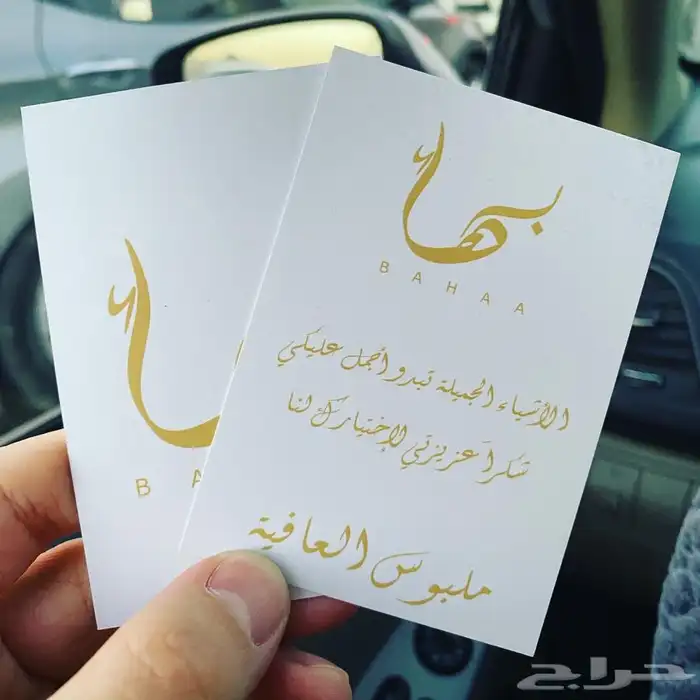 بهاء
BAHAA
الأشياء الجميلة تبدو أجمل عليكي
شكراً عزيزتي لإختيارك لنا
ملبوس العافية
B A
حراج